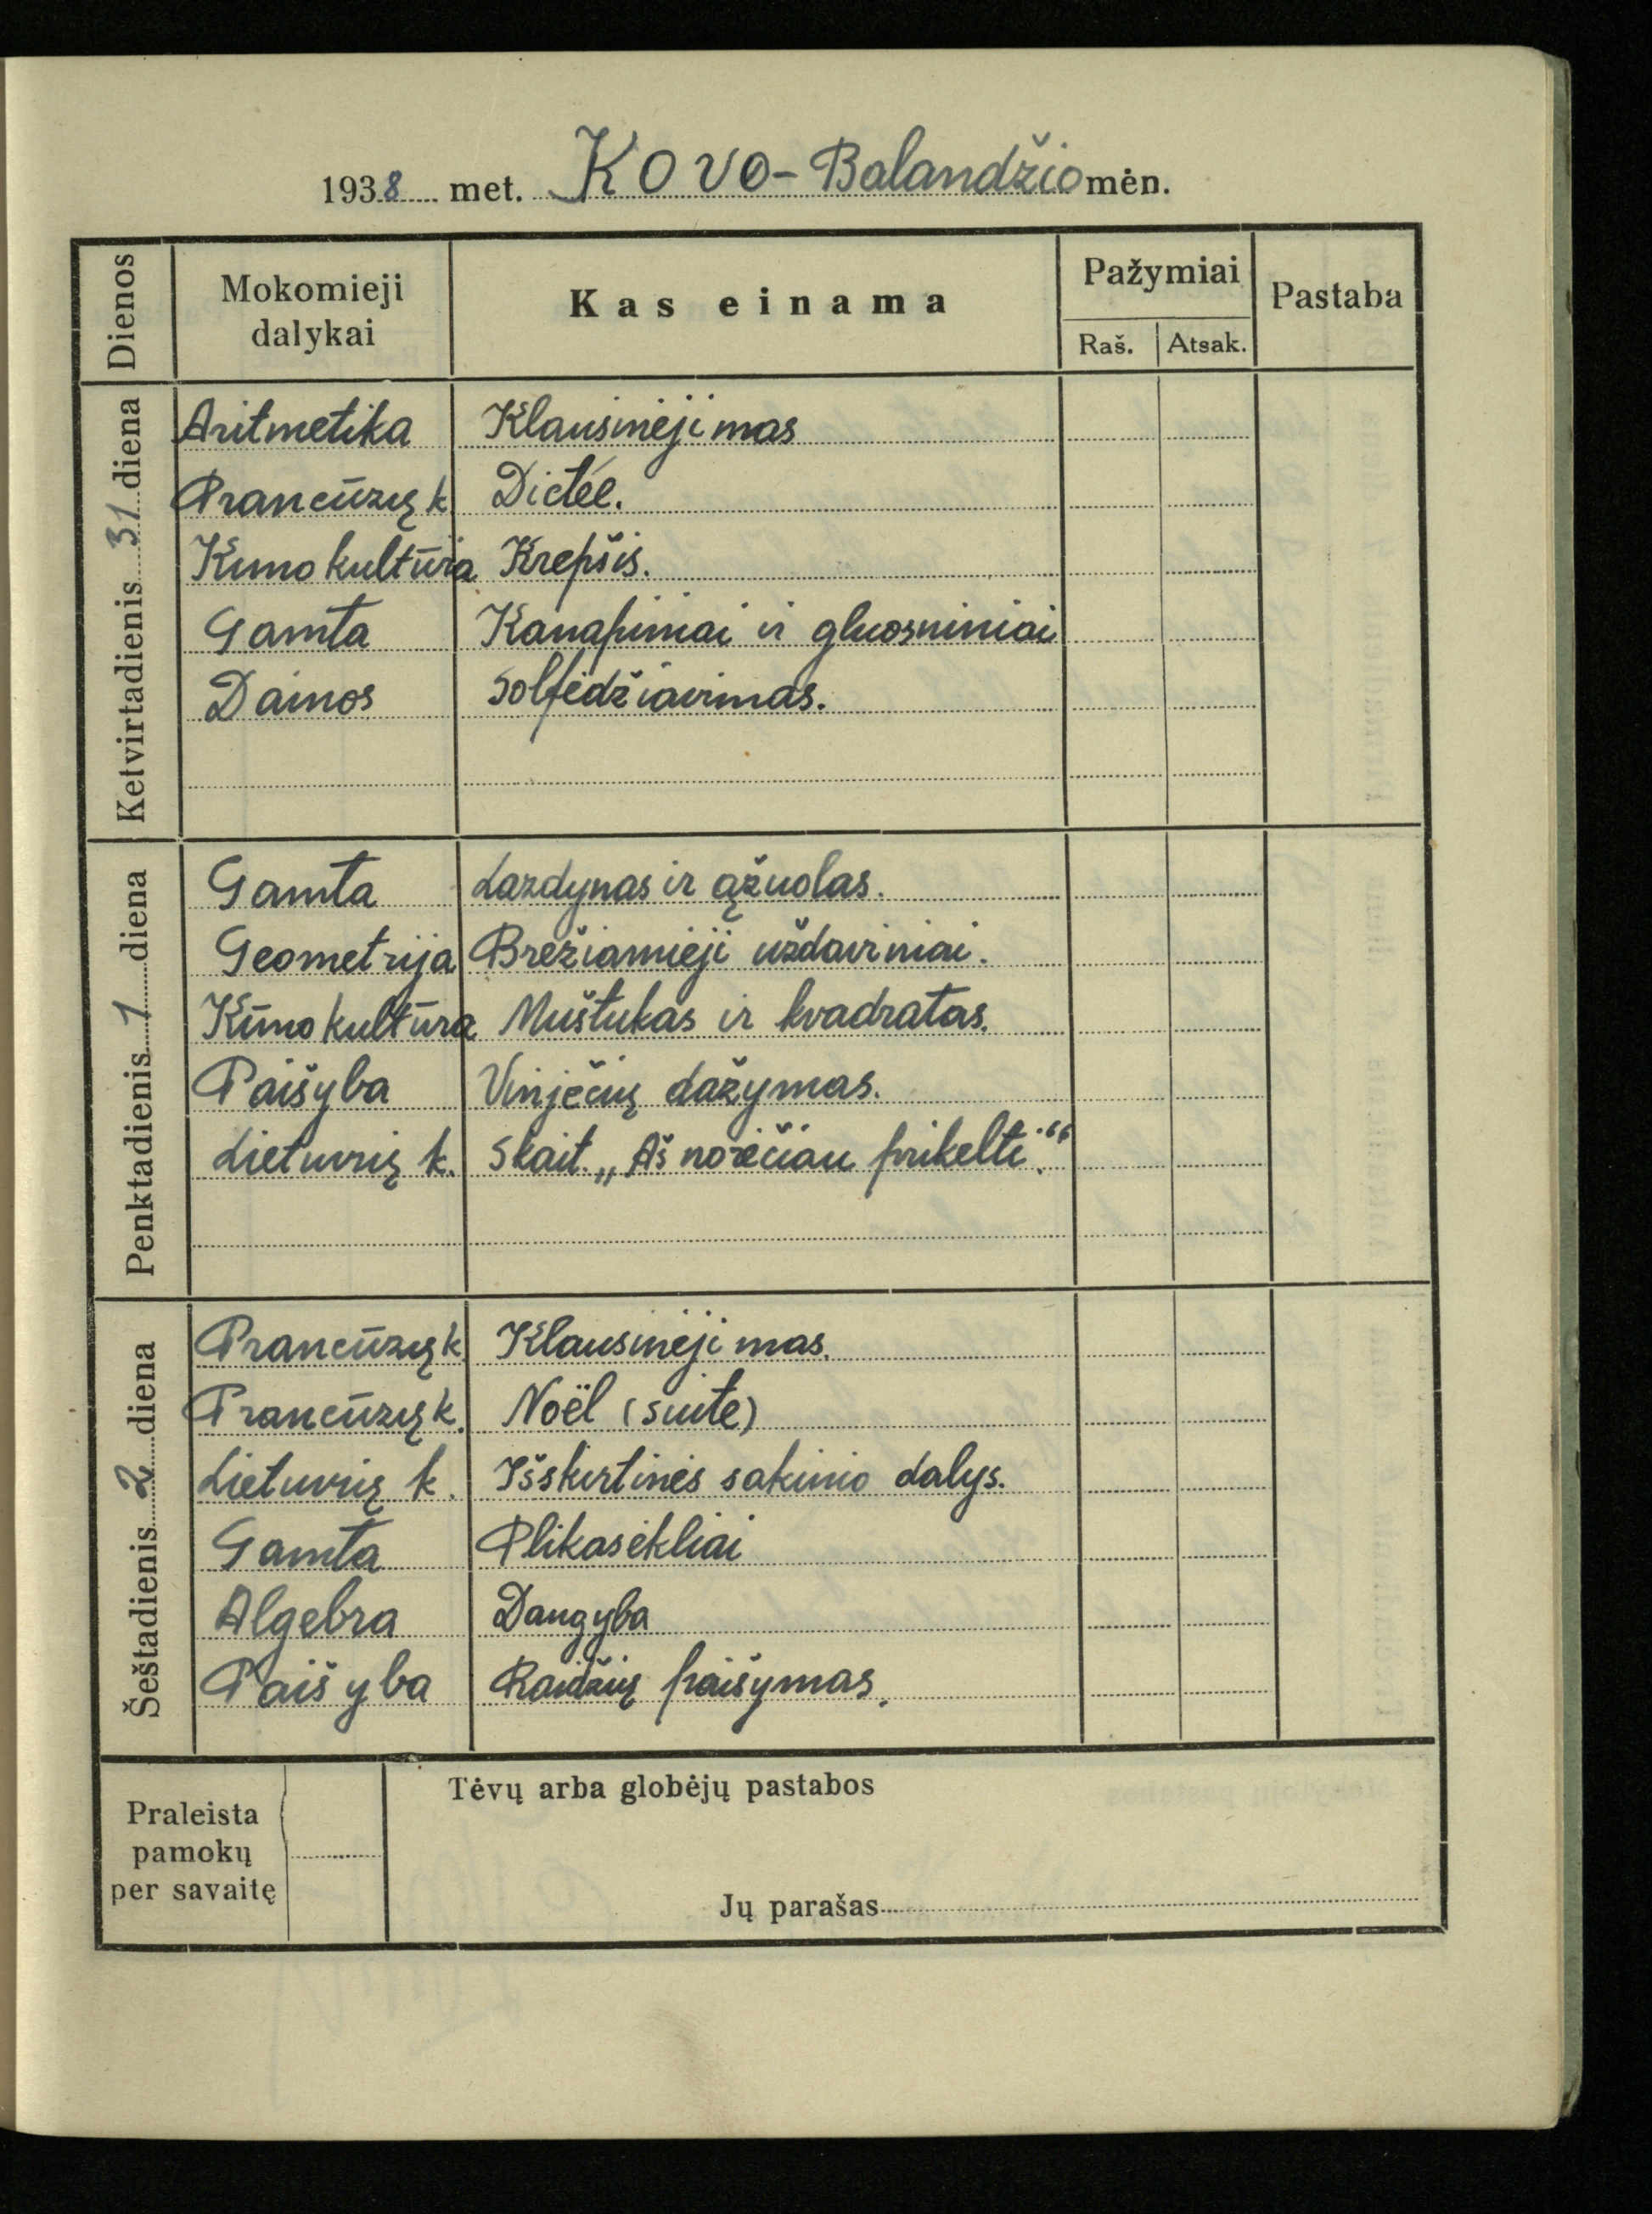 1938 met. Kovo-Balandžio mėn.
Dienos
Mokomieji dalykai
Kas einama
Pažymiai
Raš.
Atsak.
Pastaba
Ketvirtadienis 31 diena
Aritmetika Klausinėjimas
Prancūzų k. Dictée.
Kūno kultūra Krepšis.
Gamta Kanapiniai ir gluosniniai
Dainos Solfedžiavimas.
Penktadienis 1 diena
Gamta Lazdynas ir ąžuolas.
Geometrija Brėžiamieji uždaviniai.
Kūno kultūra Muštukas ir kvadratas.
Paišyba Vinječių dažymas.
Lietuvių k. Skait. „Aš norėčiau prikelti."
Šeštadienis 2 diena
Prancūzų k. Klausinėjimas.
Prancūzų k. Noël (suite)
Lietuvių k. Išskirtinės sakinio dalys.
Gamta Plikasėkliai
Algebra Daugyba
Paišyba Raidžių paišymas.
Praleista pamokų per savaitę
Tėvų arba globėjų pastabos
Jų parašas